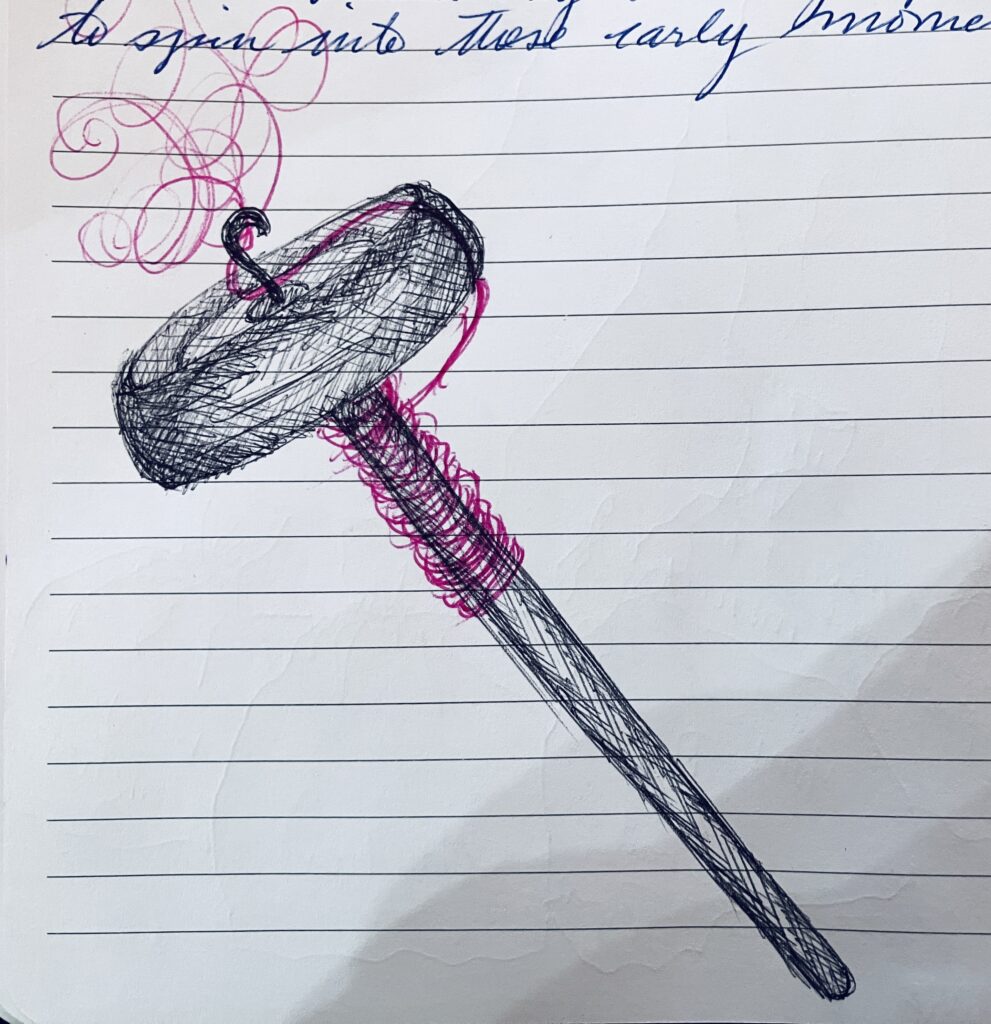 to spin into those early mome